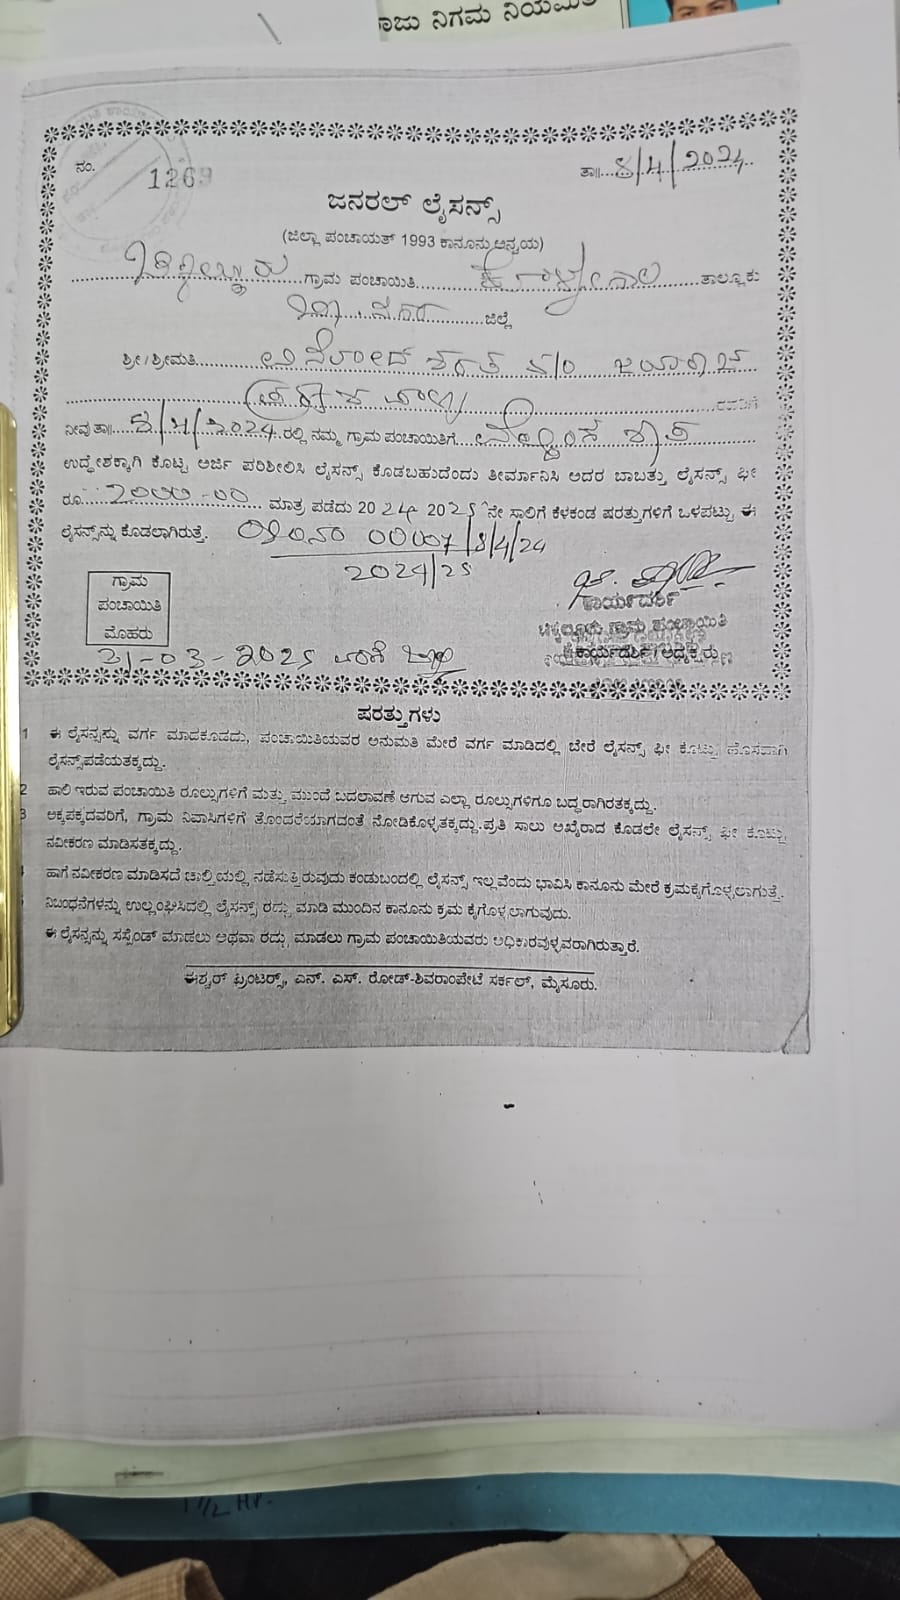 ರಾಜು ನಿಗಮ ನಿಯಮಿತ
ನಂ. 1269
ತಾ॥ 8/4/2024
ಜನರಲ್ ಲೈಸನ್ಸ್
(ಜಿಲ್ಲಾ ಪಂಚಾಯತ್ 1993 ಕಾನೂನು ಅನ್ವಯ)
ಗ್ರಾಮ ಪಂಚಾಯಿತಿ ಕೊಳ್ಳೇಗಾಲ ತಾಲ್ಲೂಕು
ಜಿಲ್ಲೆ
ಶ್ರೀ/ಶ್ರೀಮತಿ
ರವರಿಗೆ
ನೀವು ತಾ॥ 8/4/2024 ರಲ್ಲಿ ನಮ್ಮ ಗ್ರಾಮ ಪಂಚಾಯಿತಿಗೆ
ಉದ್ದೇಶಕ್ಕಾಗಿ ಕೊಟ್ಟ ಅರ್ಜಿ ಪರಿಶೀಲಿಸಿ ಲೈಸನ್ಸ್ ಕೊಡಬಹುದೆಂದು ತೀರ್ಮಾನಿಸಿ ಅದರ ಬಾಬತ್ತು ಲೈಸನ್ಸ್ ಫೀ
ರೂ. 2000-00 ಮಾತ್ರ ಪಡೆದು 2024 2025 ನೇ ಸಾಲಿಗೆ ಕೆಳಕಂಡ ಷರತ್ತುಗಳಿಗೆ ಒಳಪಟ್ಟು ಈ
ಲೈಸನ್ಸ್‌ನ್ನು ಕೊಡಲಾಗಿರುತ್ತೆ. 00007/8/4/24
2024/25
ಗ್ರಾಮ
ಪಂಚಾಯಿತಿ
ಮೊಹರು
ಕಾರ್ಯದರ್ಶಿ
ಗ್ರಾಮ ಪಂಚಾಯಿತಿ
ಕಾರ್ಯದರ್ಶಿ / ಅಧ್ಯಕ್ಷರು
31-03-2025
ಷರತ್ತುಗಳು
1 ಈ ಲೈಸನ್ಸನ್ನು ವರ್ಗ ಮಾಡಕೂಡದು, ಪಂಚಾಯಿತಿಯವರ ಅನುಮತಿ ಮೇರೆ ವರ್ಗ ಮಾಡಿದಲ್ಲಿ ಬೇರೆ ಲೈಸನ್ಸ್ ಫೀ ಕೊಟ್ಟು ಹೊಸದಾಗಿ
ಲೈಸನ್ಸ್‌ಪಡೆಯತಕ್ಕದ್ದು.
2 ಹಾಲಿ ಇರುವ ಪಂಚಾಯಿತಿ ರೂಲ್ಸುಗಳಿಗೆ ಮತ್ತು ಮುಂದೆ ಬದಲಾವಣೆ ಆಗುವ ಎಲ್ಲಾ ರೂಲ್ಸುಗಳಿಗೂ ಬದ್ಧರಾಗಿರತಕ್ಕದ್ದು.
3 ಅಕ್ಕಪಕ್ಕದವರಿಗೆ, ಗ್ರಾಮ ನಿವಾಸಿಗಳಿಗೆ ತೊಂದರೆಯಾಗದಂತೆ ನೋಡಿಕೊಳ್ಳತಕ್ಕದ್ದು. ಪ್ರತಿ ಸಾಲು ಅಖೈರಾದ ಕೂಡಲೇ ಲೈಸನ್ಸ್ ಫೀ ಕೊಟ್ಟು
ನವೀಕರಣ ಮಾಡಿಸತಕ್ಕದ್ದು.
ಹಾಗೆ ನವೀಕರಣ ಮಾಡಿಸದೆ ಚಾಲ್ತಿಯಲ್ಲಿ ನಡೆಸುತ್ತಿರುವುದು ಕಂಡುಬಂದಲ್ಲಿ ಲೈಸನ್ಸ್ ಇಲ್ಲವೆಂದು ಭಾವಿಸಿ ಕಾನೂನು ಮೇರೆ ಕ್ರಮಕೈಗೊಳ್ಳಲಾಗುತ್ತೆ.
ನಿಬಂಧನೆಗಳನ್ನು ಉಲ್ಲಂಘಿಸಿದಲ್ಲಿ ಲೈಸನ್ಸ್ ರದ್ದು ಮಾಡಿ ಮುಂದಿನ ಕಾನೂನು ಕ್ರಮ ಕೈಗೊಳ್ಳಲಾಗುವುದು.
ಈ ಲೈಸನ್ಸನ್ನು ಸಸ್ಪೆಂಡ್ ಮಾಡಲು ಅಥವಾ ರದ್ದು ಮಾಡಲು ಗ್ರಾಮ ಪಂಚಾಯಿತಿಯವರು ಅಧಿಕಾರವುಳ್ಳವರಾಗಿರುತ್ತಾರೆ.
ಈಶ್ವರ್ ಪ್ರಿಂಟರ್ಸ್, ಎನ್. ಎಸ್. ರೋಡ್-ಶಿವರಾಂಪೇಟೆ ಸರ್ಕಲ್, ಮೈಸೂರು.
1 1/2 HP.